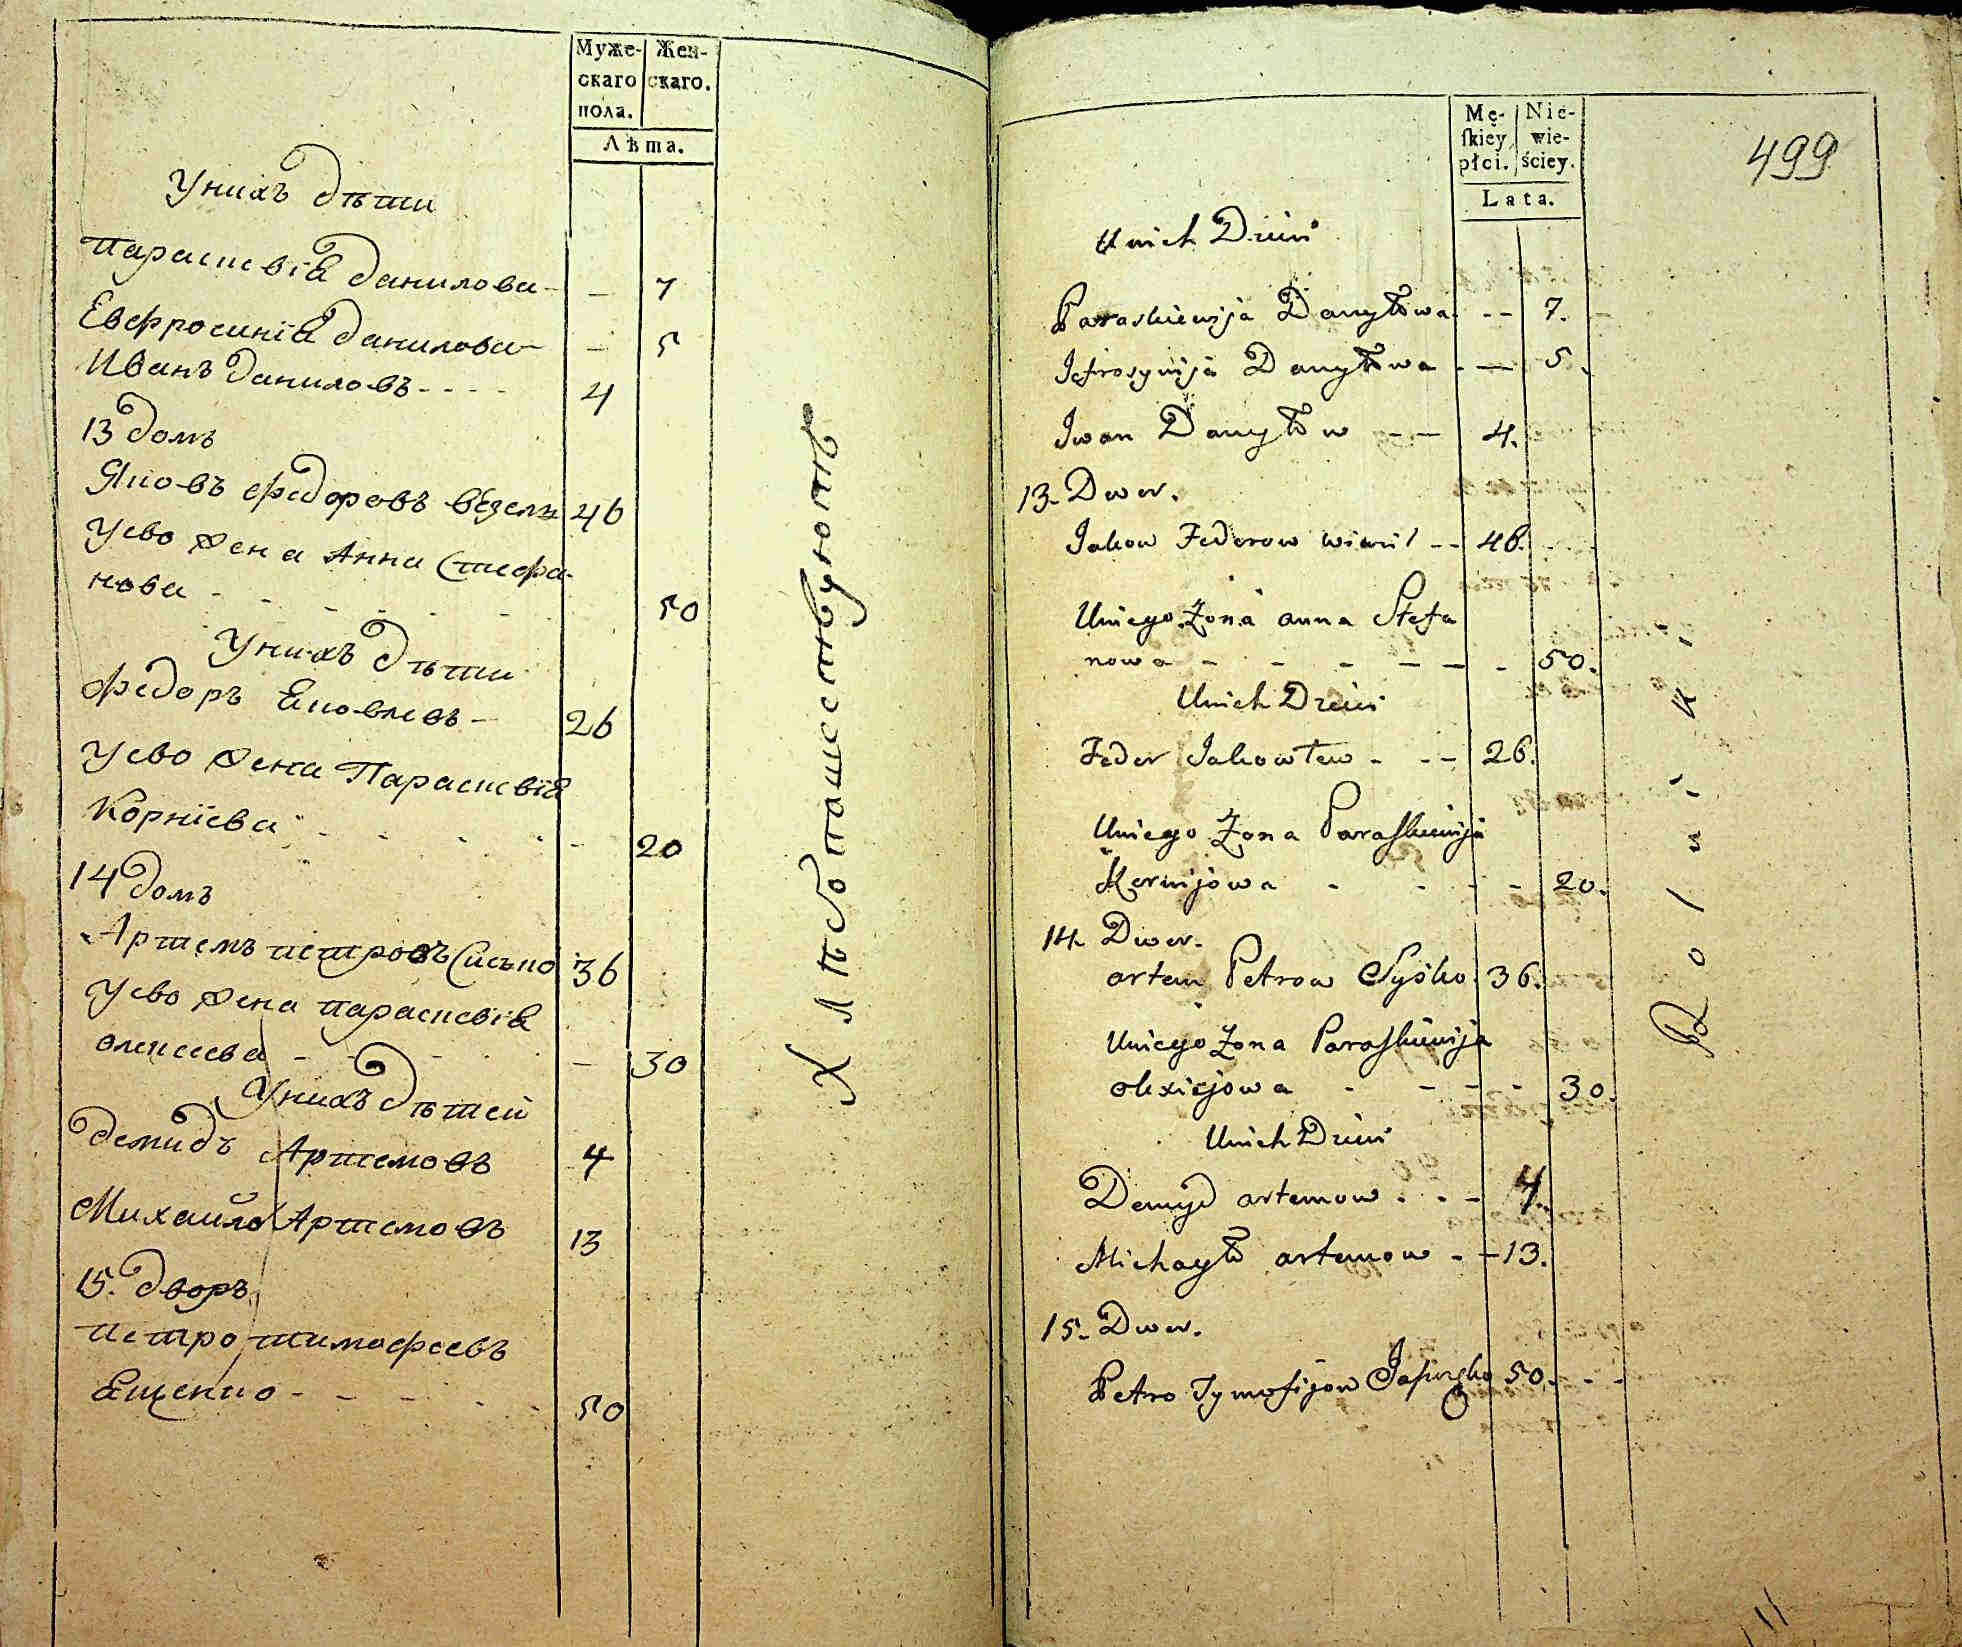 Муже-
скаго
пола.
Жен-
скаго.
Лѣта.
Унихъ дѣти
параскевія данилова - 7
Евфросинія данилова - 5
Иванъ даниловъ - - - - 4
13 домъ
Яковъ федоровъ 46
Уево жена Анна Стефа-
нова - - - - - - 50
Унихъ дѣти
федоръ Яковлевъ - 26
Уево жена Параскевія
Корнієва - - - - - 20
14 домъ
Артемъ петровъ Сисько 36
Уево жена параскевія
олексеева - - - - - 30
Унихъ дѣтей
демидъ Артемовъ 4
Михаило Артемовъ 13
15. дворъ
петро тимофеевъ
Ященко - - - - - 50
Хлѣбопашествуютъ
499
Mę-
ſkiey
płci.
Nie-
wie-
ściey.
Lata.
Unich Dzieci
Paraskiewija Danyłowa - - 7.
Jefrosynija Danyłowa - — 5.
Iwan Danyłow - — 4.
13. Dwor.
Jakow Federow - - 46.
Uniego Żona anna Stefa
nowa - - - - - - 50.
Unich Dzieci
Feder Jakowlew - - - 26.
Uniego Żona Paraſkiewija
Kornijowa - - - - 20.
14. Dwor.
artem Petrow Syśko. 36.
Uniego Żona Paraſkiewija
olexiejowa - - - - 30.
Unich Dzieci
Demyd artemow . . - 4.
Michayło artemow - - 13.
15. Dwor.
Petro Tymofijow 50. - -
Rolnik